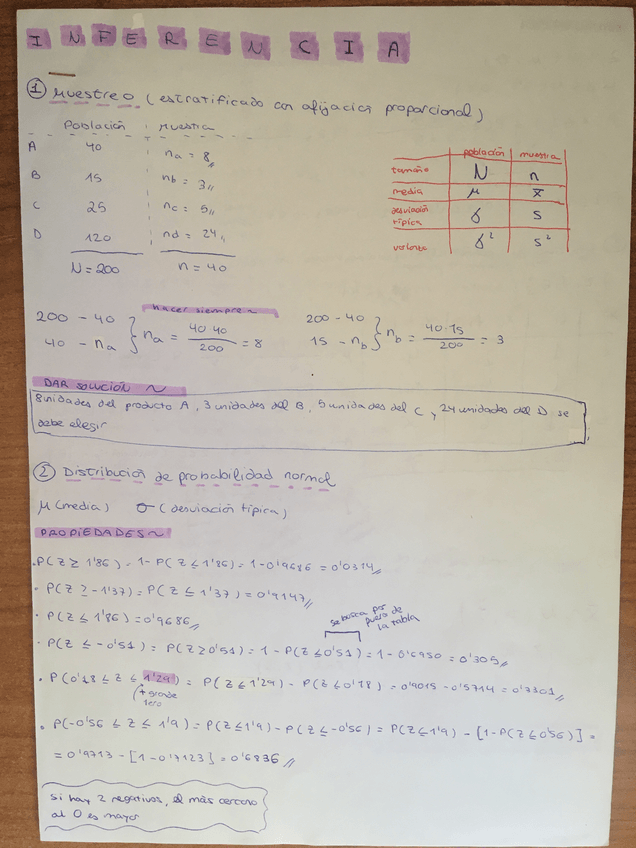 INFERENCIA
1 Muestreo (estratificado con afijación proporcional)
Población muestra
A 40 na = 8
B 15 nb = 3
C 25 nc = 5
D 120 nd = 24
N = 200 n = 40
población muestra
tamaño N n
media μ x̄
desviación típica σ s
σ² s²
hacer siempre ~
200 - 40
40 - na } na = 40·40 / 200 = 8
200 - 40
15 - nb } nb = 40·15 / 200 = 3
DAR SOLUCIÓN ~
8 unidades del producto A, 3 unidades del B, 5 unidades del C, 24 unidades del D se
debe elegir
2 Distribución de probabilidad normal
μ (media) σ (desviación típica)
PROPIEDADES ~
· P(Z ≥ 1'86) = 1 - P(Z ≤ 1'86) = 1 - 0'9686 = 0'0314
· P(Z ≥ -1'37) = P(Z ≤ 1'37) = 0'9147
· P(Z ≤ 1'86) = 0'9686
se busca por
de
la tabla
· P(Z ≤ -0'51) = P(Z ≥ 0'51) = 1 - P(Z ≤ 0'51) = 1 - 0'6950 = 0'305
· P(0'18 ≤ Z ≤ 1'29) = P(Z ≤ 1'29) - P(Z ≤ 0'18) = 0'9015 - 0'5714 = 0'3301
(+ grande
1ero)
· P(-0'56 ≤ Z ≤ 1'9) = P(Z ≤ 1'9) - P(Z ≤ -0'56) = P(Z ≤ 1'9) - [1 - P(Z ≤ 0'56)] =
= 0'9713 - [1 - 0'7123] = 0'6836
Si hay 2 negativos, el más cercano
al 0 es mayor